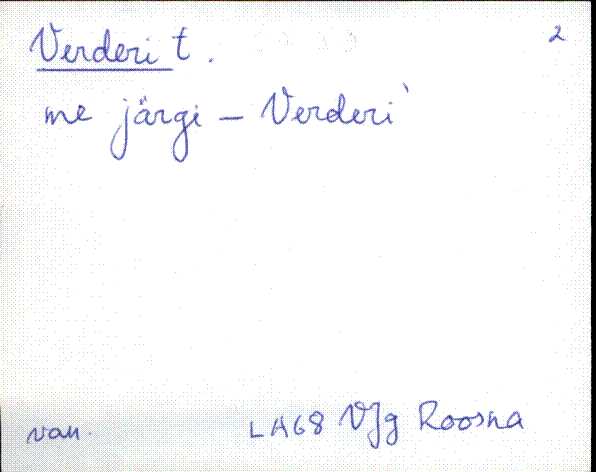 Verderi t. 2
me järgi – Verderi`
van. LA68 VJg Roosna